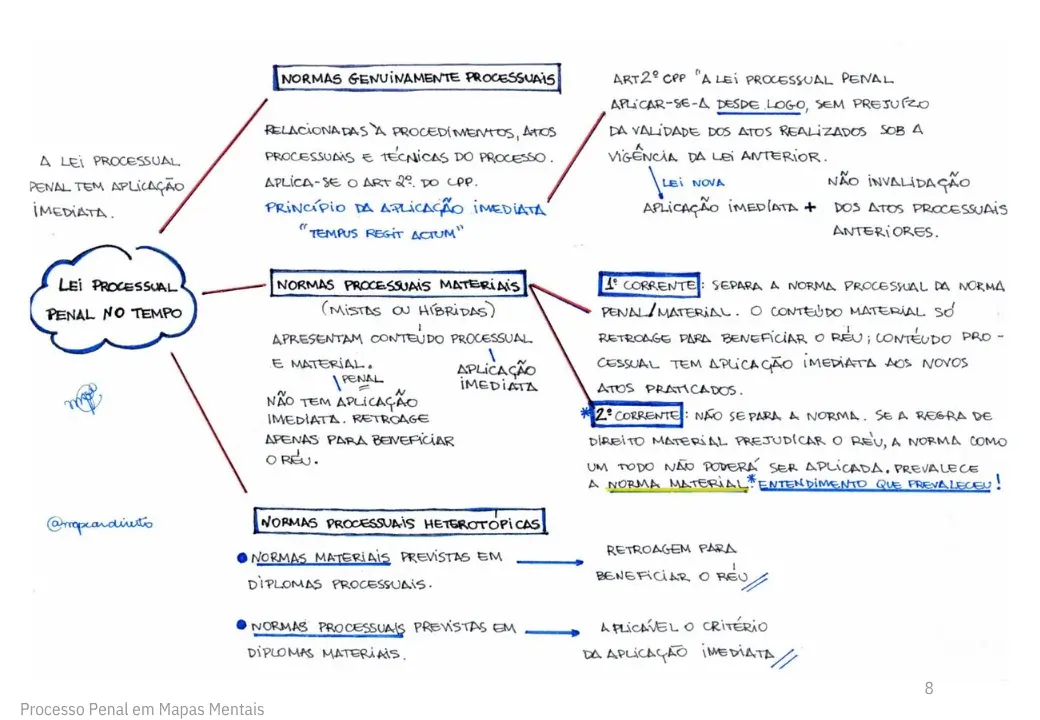 A LEI PROCESSUAL
PENAL TEM APLICAÇÃO
IMEDIATA.
LEI PROCESSUAL
PENAL NO TEMPO
@mapeardireito
NORMAS GENUINAMENTE PROCESSUAIS
RELACIONADAS À PROCEDIMENTOS, ATOS
PROCESSUAIS E TÉCNICAS DO PROCESSO.
APLICA-SE O ART 2º. DO CPP.
PRINCÍPIO DA APLICAÇÃO IMEDIATA
"TEMPUS REGIT ACTUM"
ART2º CPP "A LEI PROCESSUAL PENAL
APLICAR-SE-A DESDE LOGO, SEM PREJUÍZO
DA VALIDADE DOS ATOS REALIZADOS SOB A
VIGÊNCIA DA LEI ANTERIOR.
LEI NOVA
APLICAÇÃO IMEDIATA +
NÃO INVALIDAÇÃO
DOS ATOS PROCESSUAIS
ANTERIORES.
NORMAS PROCESSUAIS MATERIAIS
(MISTAS OU HÍBRIDAS)
APRESENTAM CONTEÚDO PROCESSUAL
E MATERIAL.
APLICAÇÃO
IMEDIATA
PENAL
NÃO TEM APLICAÇÃO
IMEDIATA. RETROAGE
APENAS PARA BENEFICIAR
O RÉU.
1ª CORRENTE: SEPARA A NORMA PROCESSUAL DA NORMA
PENAL/MATERIAL. O CONTEÚDO MATERIAL SÓ
RETROAGE PARA BENEFICIAR O RÉU; CONTEÚDO PRO-
CESSUAL TEM APLICAÇÃO IMEDIATA AOS NOVOS
ATOS PRATICADOS.
*2ª CORRENTE: NÃO SEPARA A NORMA. SE A REGRA DE
DIREITO MATERIAL PREJUDICAR O RÉU, A NORMA COMO
UM TODO NÃO PODERÁ SER APLICADA. PREVALECE
A NORMA MATERIAL. *ENTENDIMENTO QUE PREVALECEU!
NORMAS PROCESSUAIS HETEROTÓPICAS
● NORMAS MATERIAIS PREVISTAS EM
DIPLOMAS PROCESSUAIS.
RETROAGEM PARA
BENEFICIAR O RÉU
● NORMAS PROCESSUAIS PREVISTAS EM
DIPLOMAS MATERIAIS.
APLICÁVEL O CRITÉRIO
DA APLICAÇÃO IMEDIATA
8
Processo Penal em Mapas Mentais